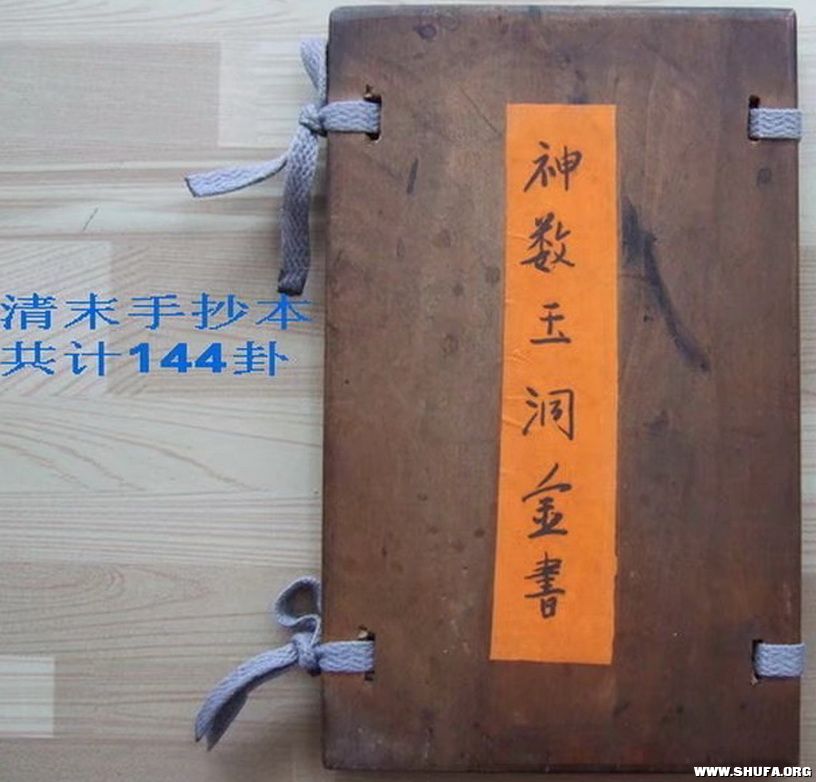 清末手抄本
共计144卦
神数玉洞金書
WWW.SHUFA.ORG